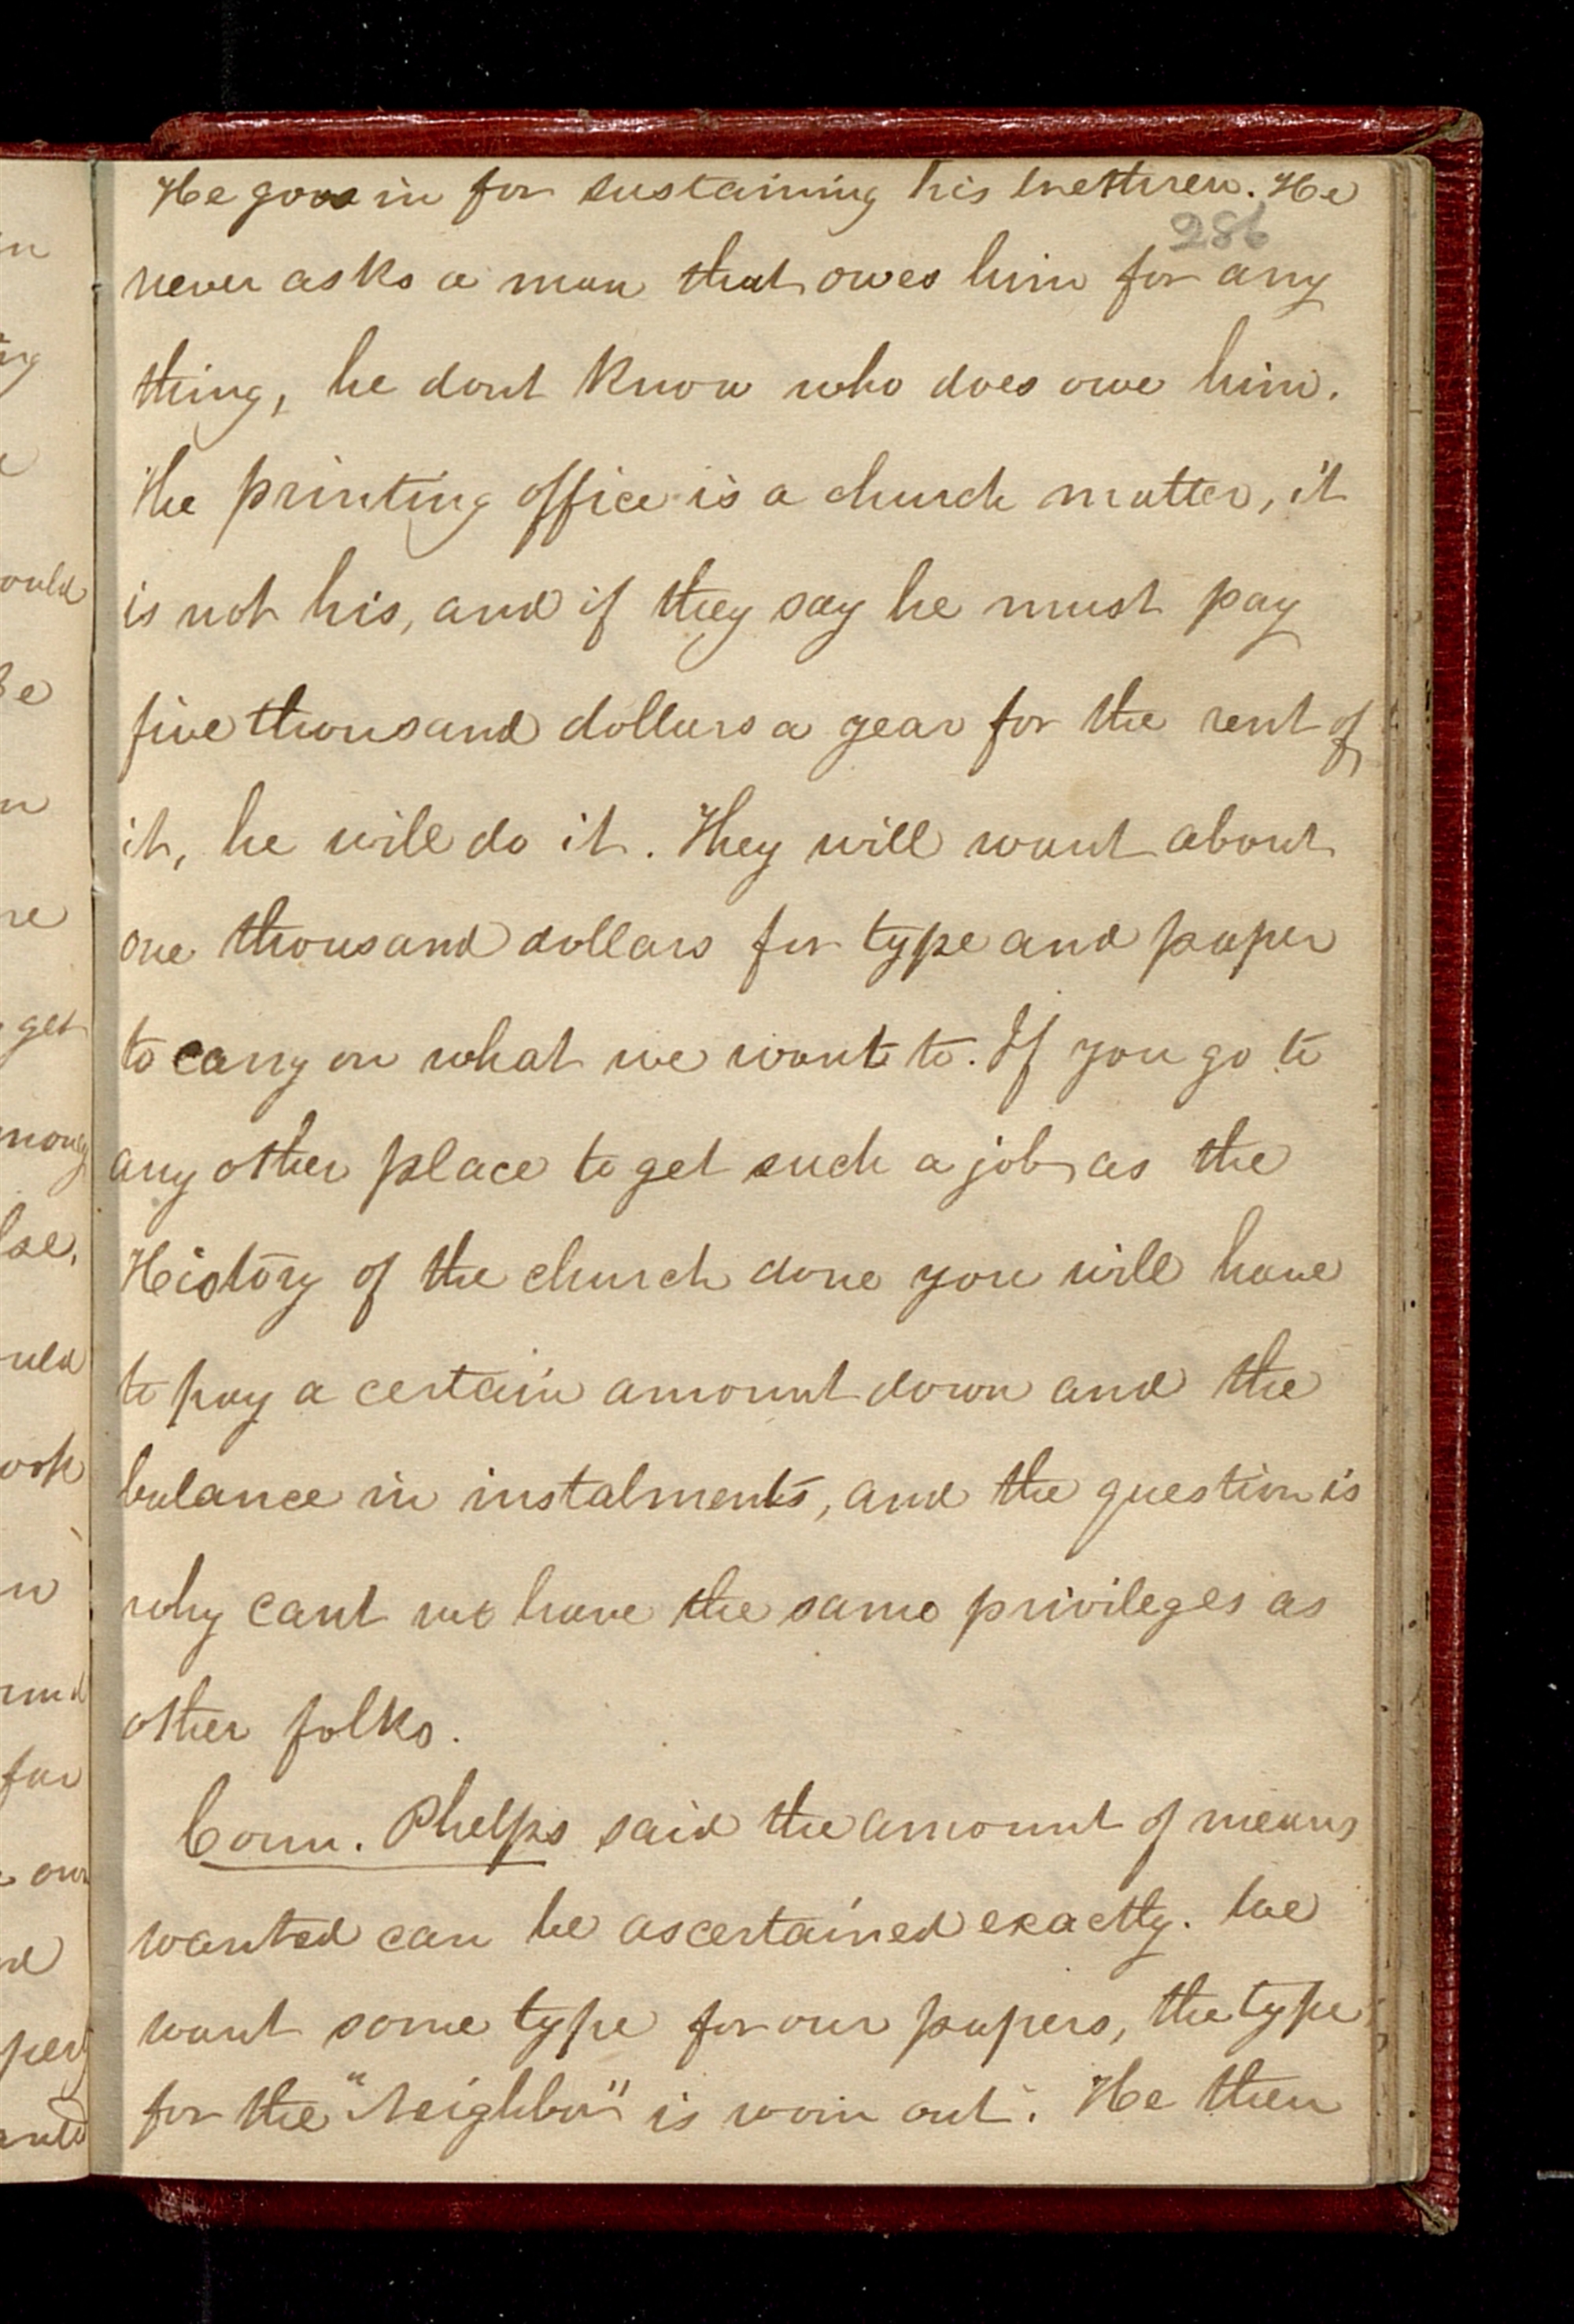 He goes in for sustaining his brethren. He
286
never asks a man that owes him for any
thing, he dont know who does owe him.
The printing office is a church matter, it
is not his, and if they say he must pay
five thousand dollars a year for the rent of
it, he will do it. They will want about
one thousand dollars for type and paper
to carry on what we want to. If you go to
any other place to get such a job as the
History of the church done you will have
to pay a certain amount down and the
balance in instalments, and the question is
why cant we have the same privileges as
other folks.
Coun. Phelps said the amount of means
wanted can be ascertained exactly. We
want some type for our papers, the type
for the "Neighbor" is worn out. He then